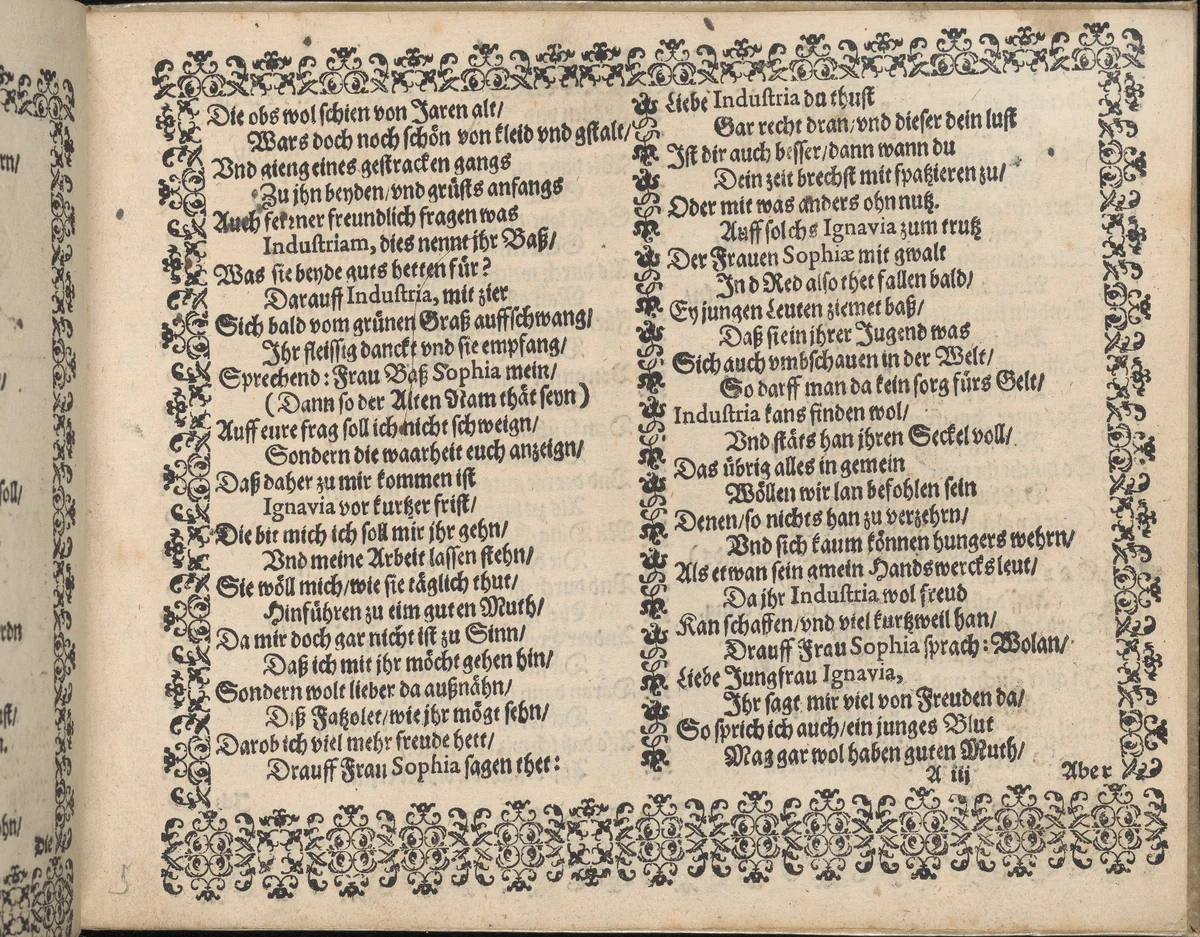 rn/
soll/
rdn
ust/
n.
ohn/
Die
Die obs wol schien von Jaren alt/
Wars doch noch schön von kleid vnd gstalt/
Vnd gieng eines gestracken gangs
Zu jhn beyden/vnd grüsts anfangs
Auch ferrner freundlich fragen was
Industriam, dies nennt jhr Baß/
Was sie beyde guts hetten für?
Darauff Industria, mit zier
Sich bald vom grünen Graß auffschwang/
Jhr fleissig danckt vnd sie empfang/
Sprechend: Frau Baß Sophia mein/
(Dann so der Alten Nam thät seyn)
Auff eure frag soll ich nicht schweign/
Sondern die waarheit euch anzeign/
Daß daher zu mir kommen ist
Ignavia vor kurtzer frist/
Die bit mich ich soll mir jhr gehn/
Vnd meine Arbeit lassen stehn/
Sie wöll mich/wie sie täglich thut/
Hinführen zu eim guten Muth/
Da mir doch gar nicht ist zu Sinn/
Daß ich mit jhr möcht gehen hin/
Sondern wolt lieber da außnähn/
Diß Fatzolet/wie jhr mögt sehn/
Darob ich viel mehr freude hett/
Drauff Frau Sophia sagen thet:
Liebe Industria du thust
Gar recht dran/vnd dieser dein lust
Jst dir auch besser/dann wann du
Dein zeit brechst mit spatzieren zu/
Oder mit was anders ohn nutz.
Auff solchs Ignavia zum trutz
Der Frauen Sophiæ mit gwalt
Jn d Red also thet fallen bald/
Ey jungen Leuten ziemet baß/
Daß sie in jhrer Jugend was
Sich auch vmbschauen in der Welt/
So darff man da kein sorg fürs Gelt/
Industria kans finden wol/
Vnd stäts han jhren Seckel voll/
Das übrig alles in gemein
Wöllen wir lan befohlen sein
Denen/so nichts han zu verzehrn/
Vnd sich kaum können hungers wehrn/
Als etwan sein gmein Handswercksleut/
Da jhr Industria wol freud
Kan schaffen/vnd viel kurtzweil han/
Drauff Frau Sophia sprach: Wolan/
Liebe Jungfrau Ignavia,
Jhr sagt mir viel von Freuden da/
So sprich ich auch/ein junges Blut
Mag gar wol haben guten Muth/
A iij
Aber
5